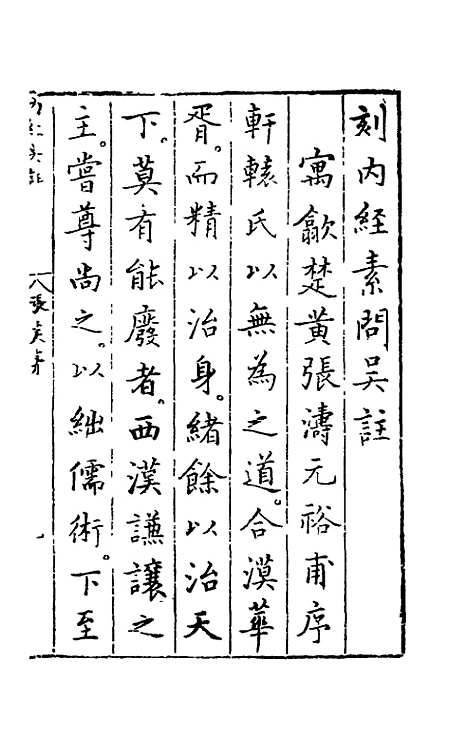 刻内経素問吳註
寓歙楚黃張濤元裕甫序
軒轅氏以無為之道。合漠華
胥。而精以治身。緒餘以治天
下。莫有能廢者。西漢謙讓之
主。嘗尊尚之。以絀儒術。下至